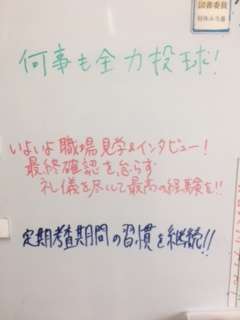 図書委員
何事も全力投球!
いよいよ職場見学&インタビュー!
最終確認を怠らず
礼儀を尽して最高の経験を!!
定期考査期間の習慣を継続!!